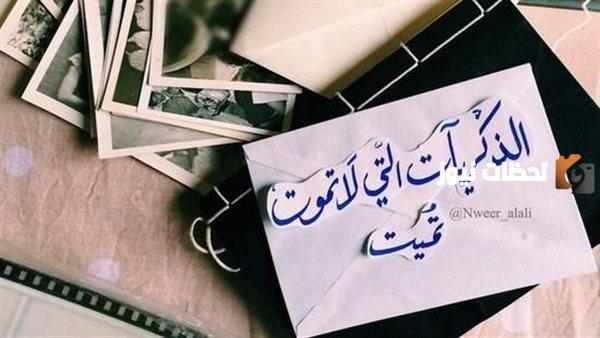 الذكريآت التي لاتموت
لحظات نيوز
@Nweer_alali
تُميت